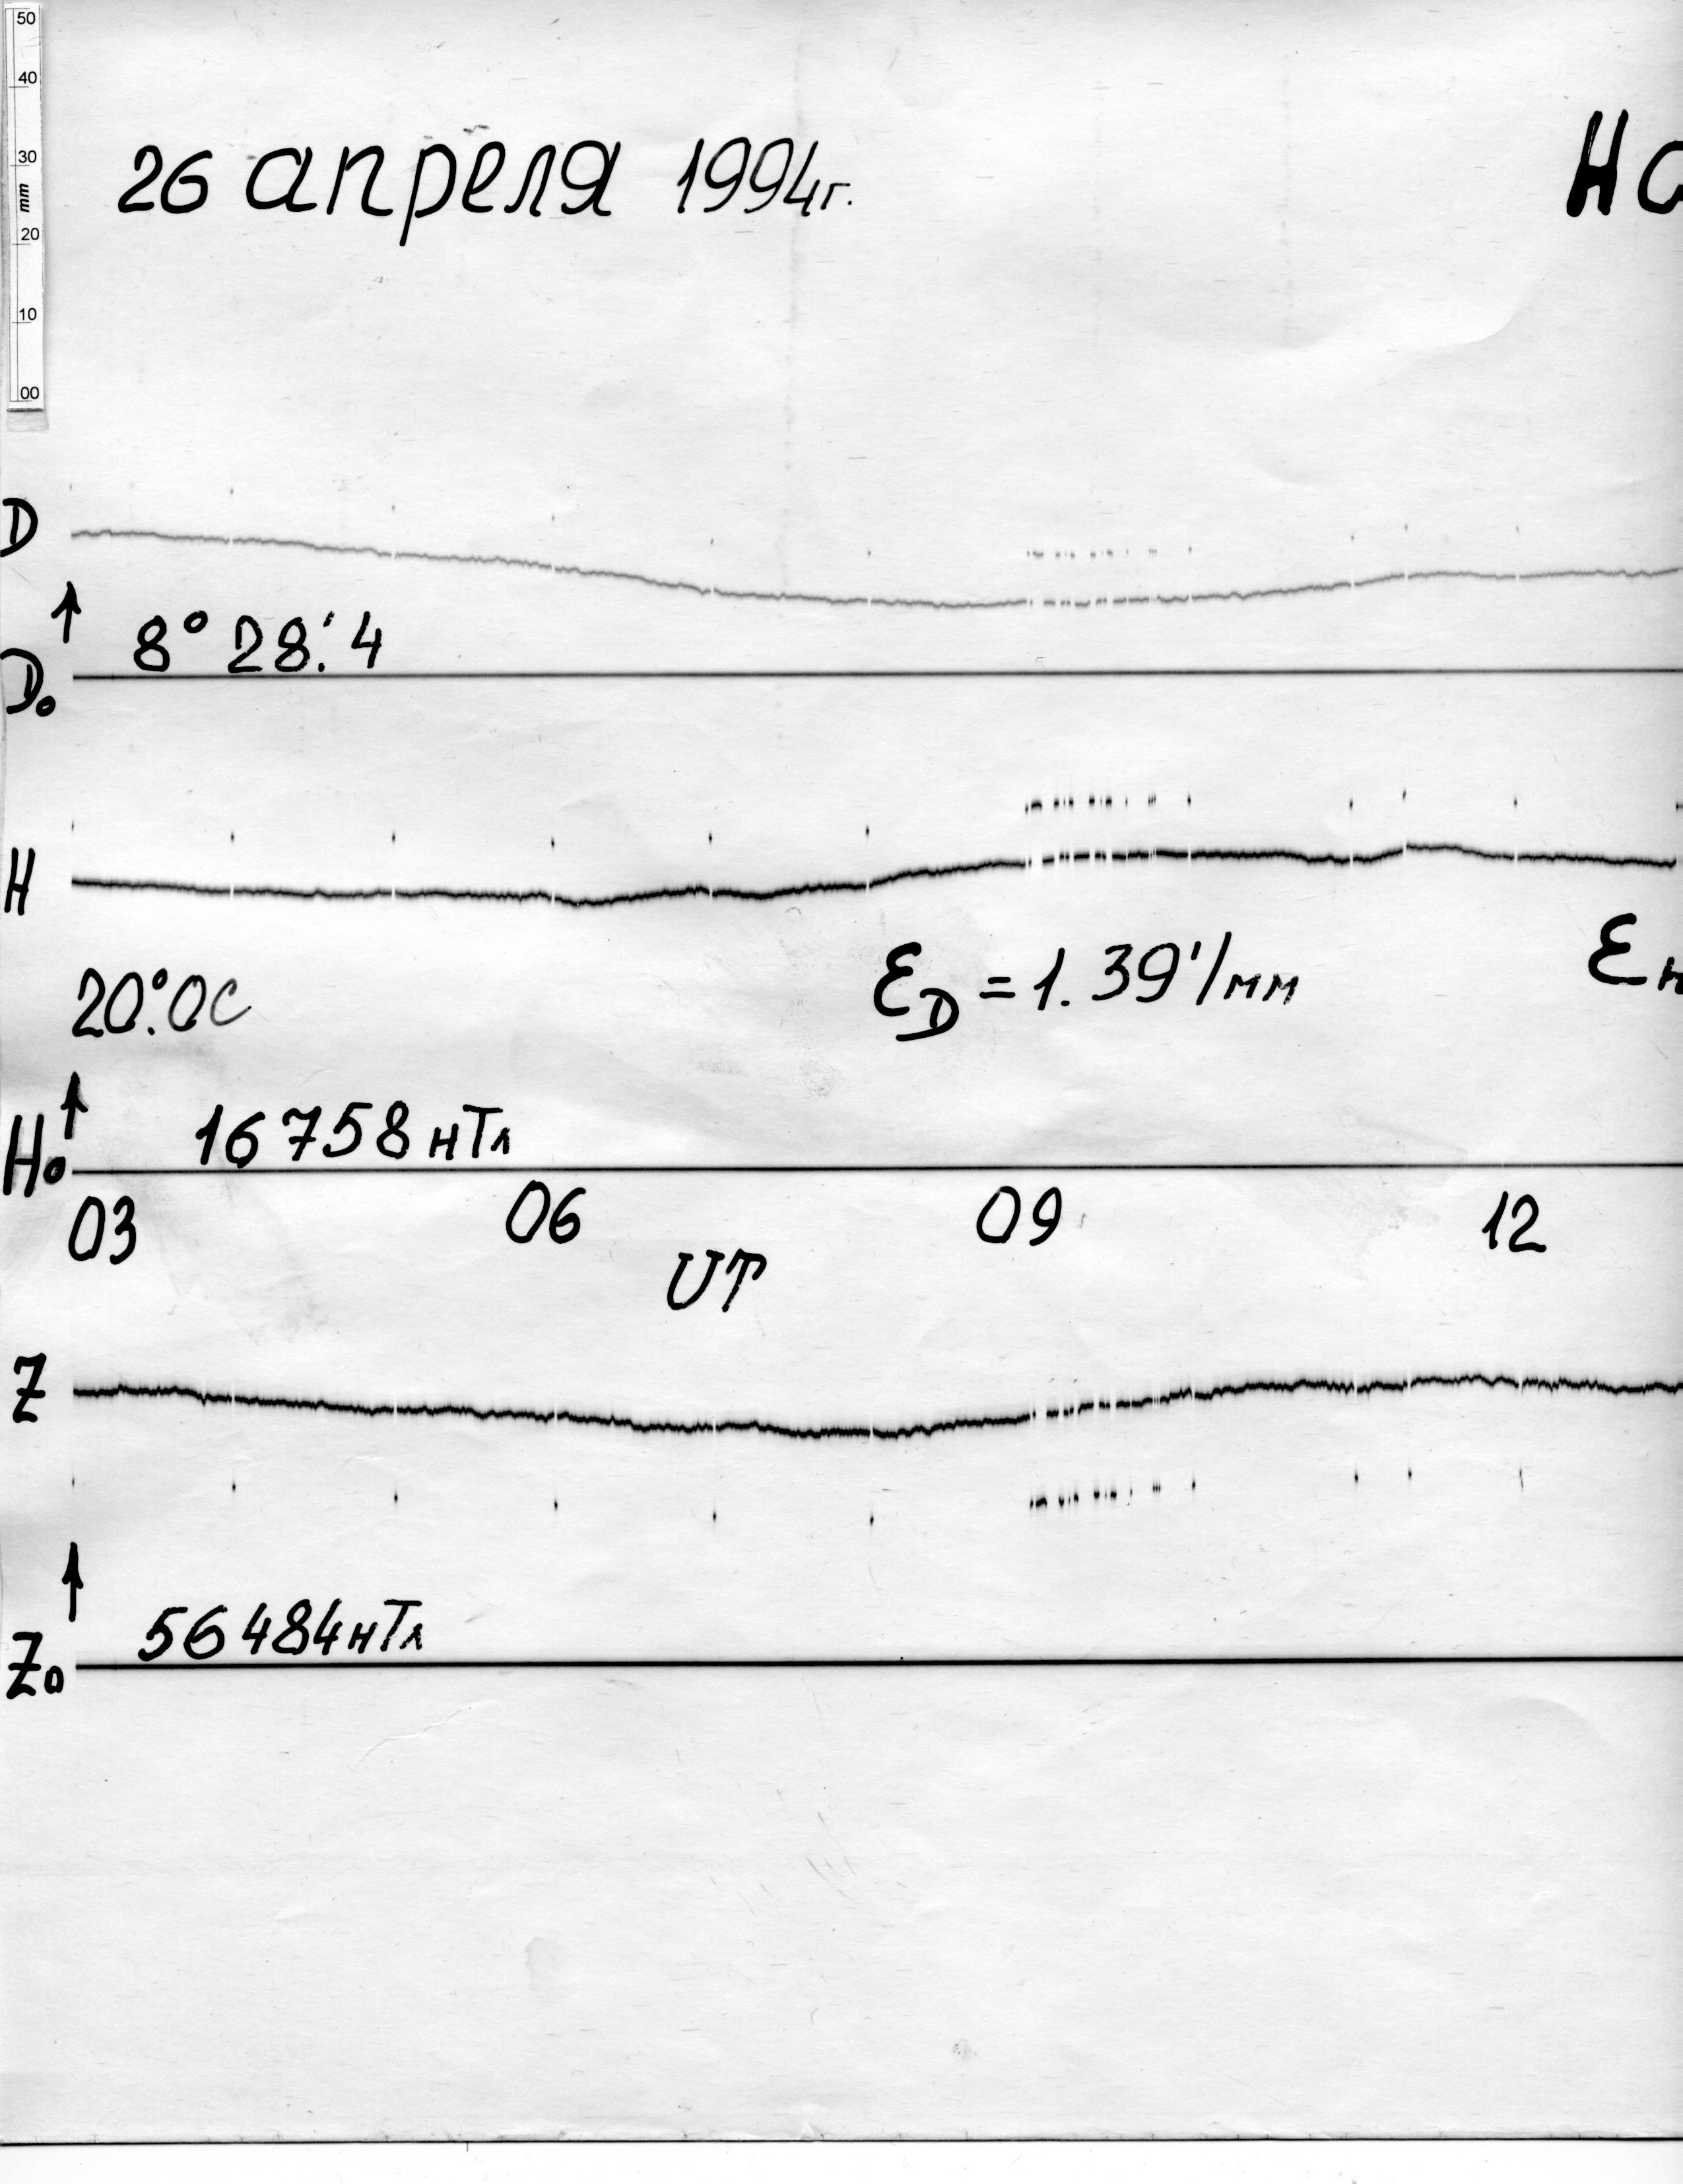 50
40
30
mm
20
10
00
26 апреля 1994г.
D
8° 28.′4
D₀
H
20.°0C
ε_D = 1.39′/мм
H₀ 16758 нТл
03 06 09 12
UT
Z
56484 нТл
Z₀